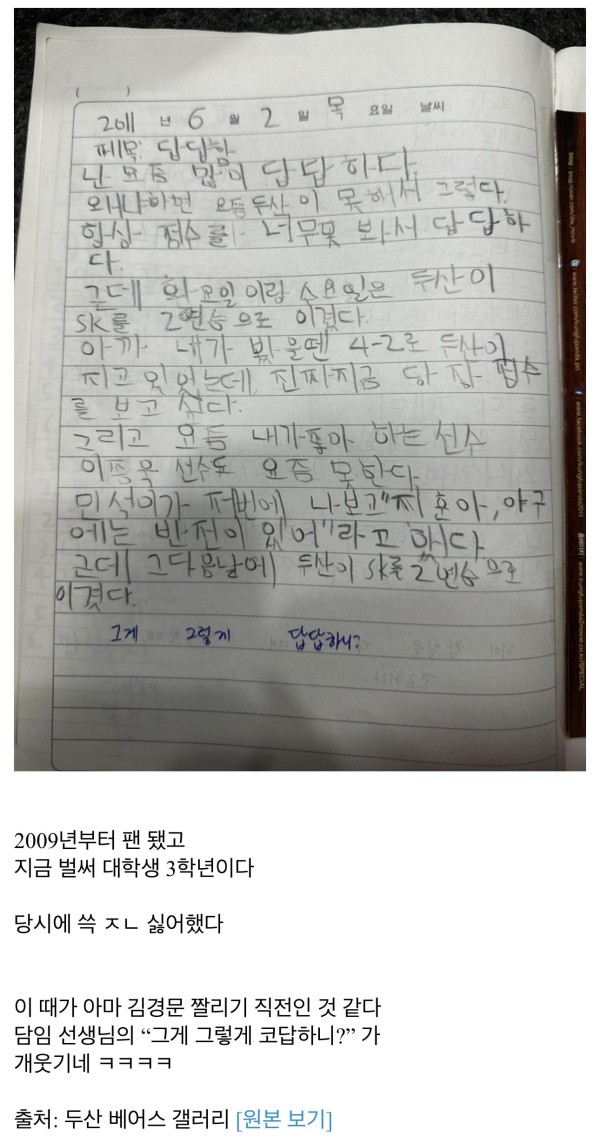 (          )
2011 년 6 월 2 일 목 요일 날씨
제목: 답답함
난 요즘 많이 답답하다.
왜냐하면 요듬두산이 못해서 그렇다.
항상 점수를 너무못 봐서 답답하
다.
근데 화요일이랑 수요일은 두산이
SK를 2연승으로 이겼다.
아까 내가 봤을땐 4-2로 두산이
지고 있었는데, 진짜지금 당장 점수
를 보고 싶다.
그리고 요듬 내가좋아 하는 선수
이종욱 선수도 요즘 못한다.
민석이가 저번에 나보고"지훈아, 야구
에는 반전이 있어"라고 했다
근데 그다음날에 두산이 SK를 2연승으로
이겼다.
그게 그렇게 답답하니?
2009년부터 팬 됐고
지금 벌써 대학생 3학년이다
당시에 쓱 ㅈㄴ 싫어했다
이 때가 아마 김경문 짤리기 직전인 것 같다
담임 선생님의 “그게 그렇게 코답하니?” 가
개웃기네 ㅋㅋㅋㅋ
출처: 두산 베어스 갤러리 [원본 보기]